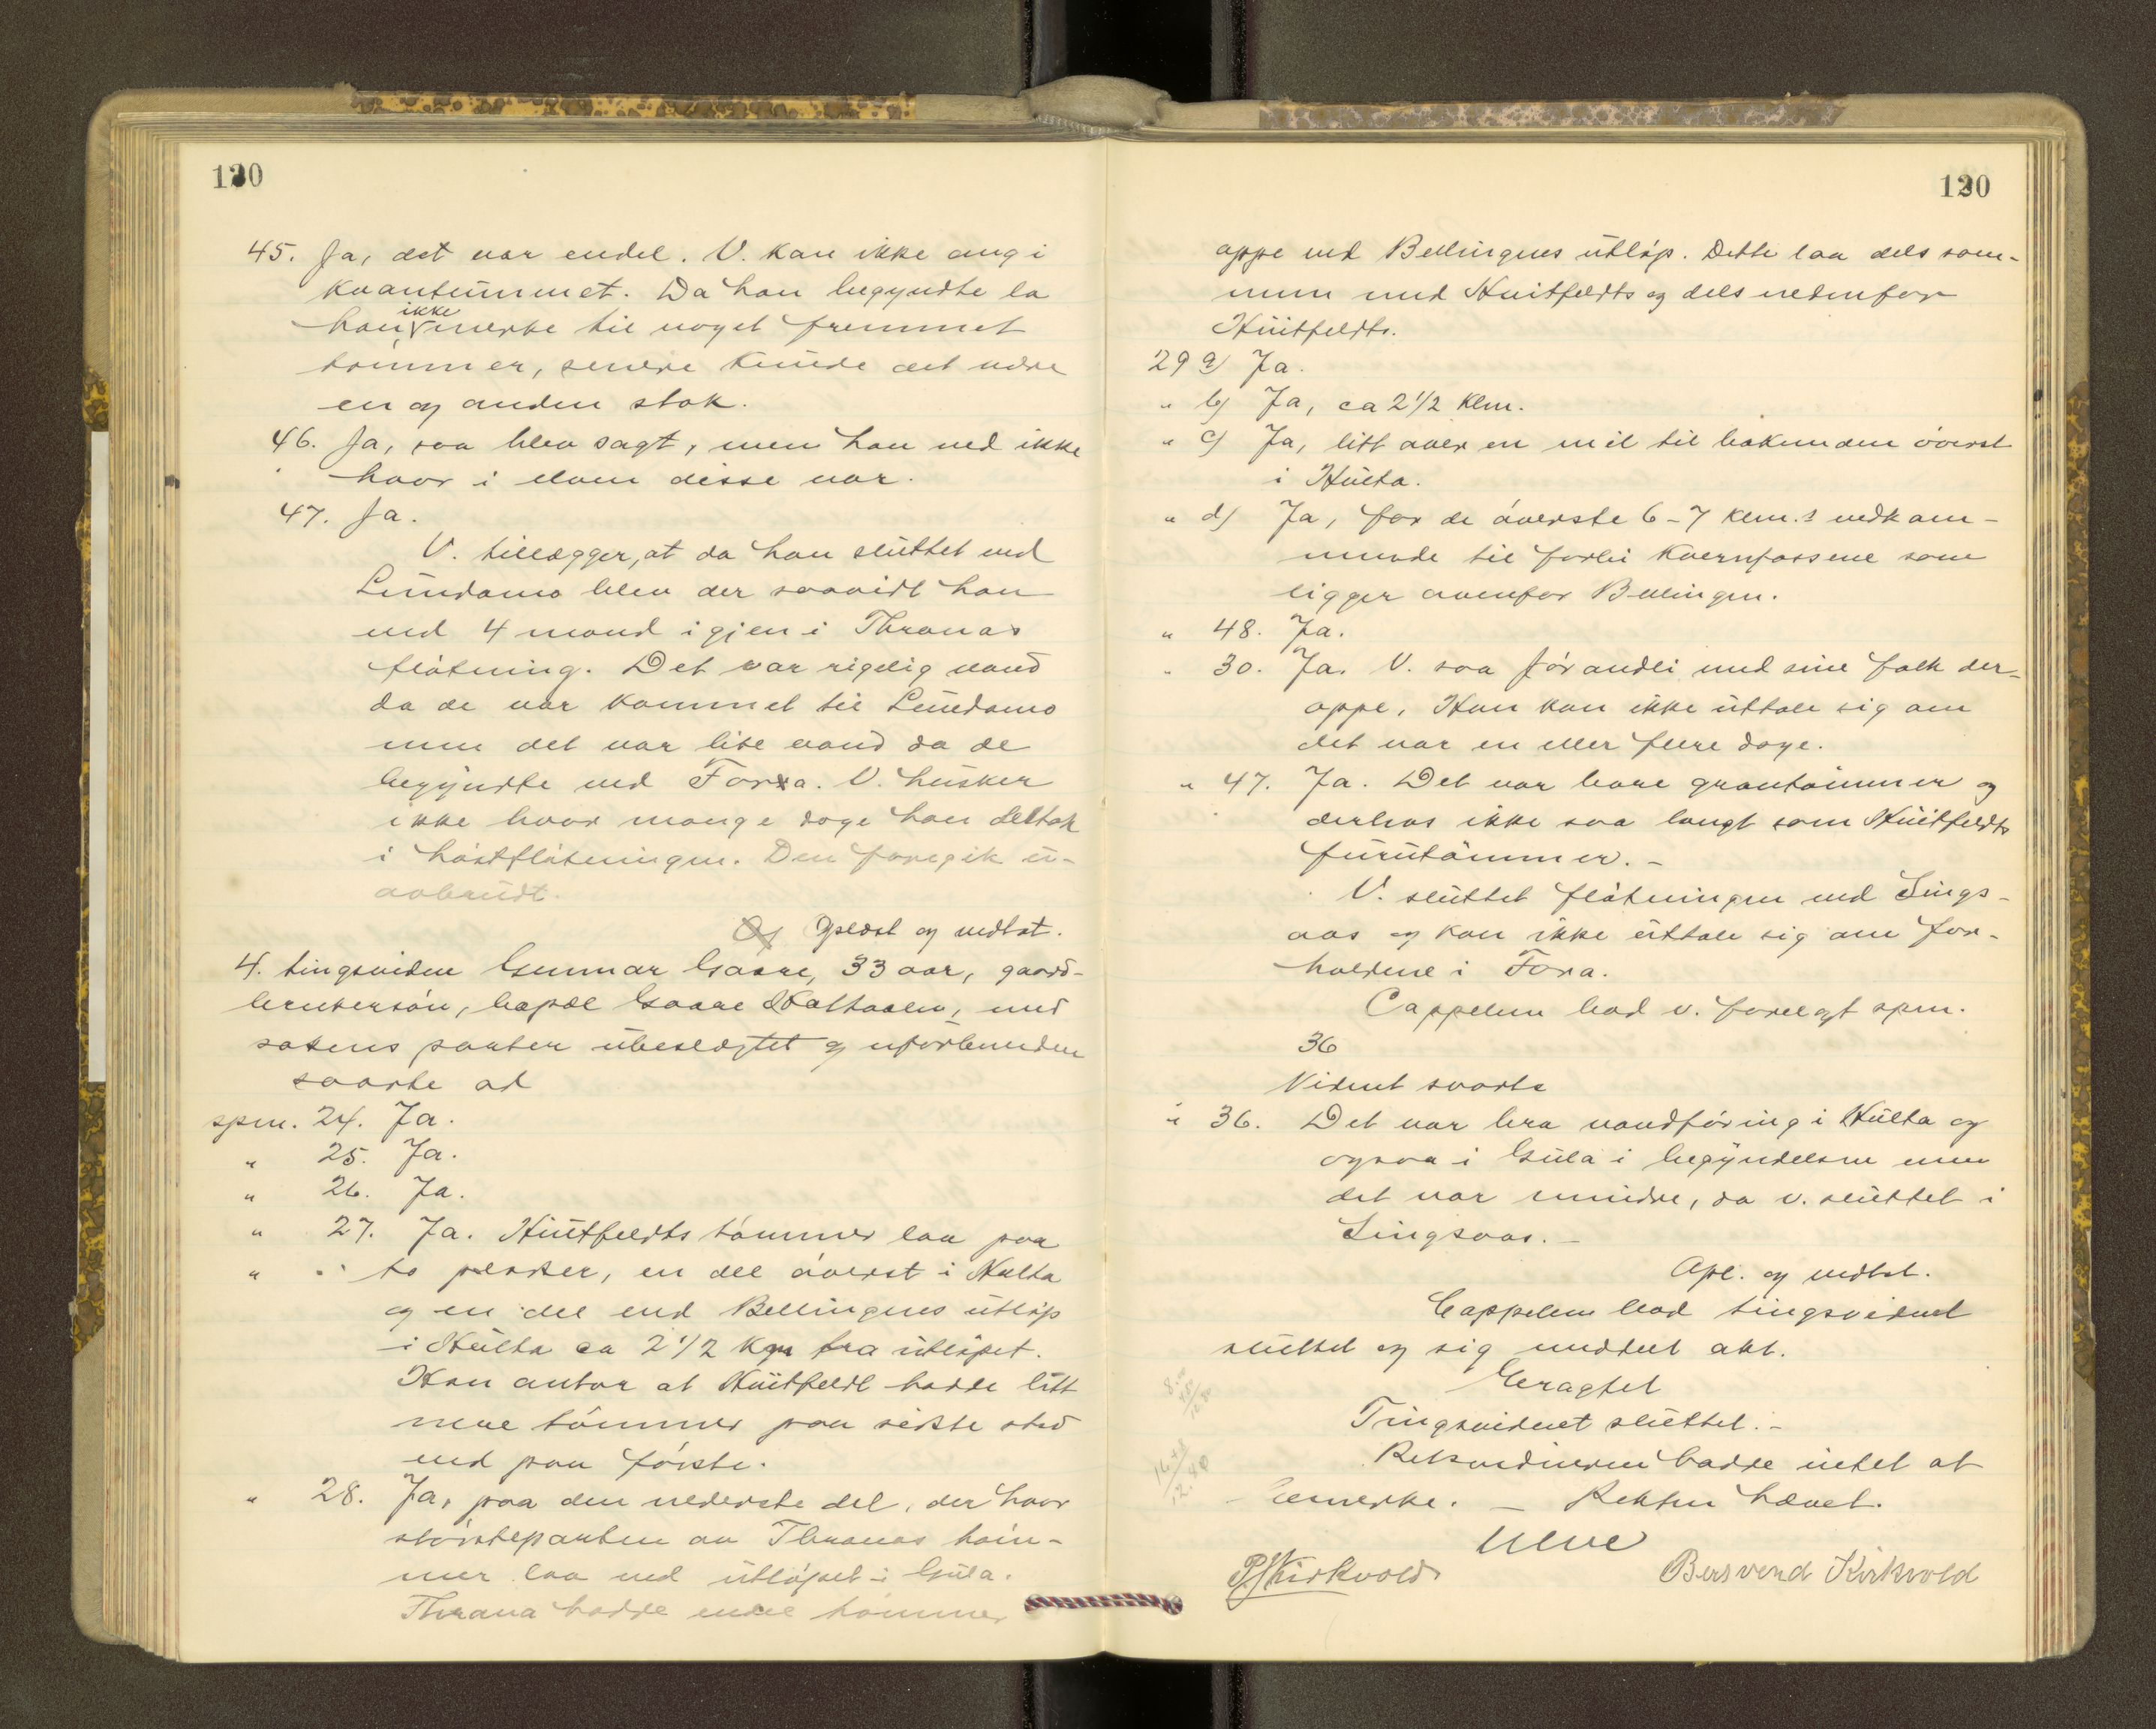 120
45. Ja, det var endel. V. kan ikke angi
kvantummet. Da han begyndte la
han ikke merke til noget fremmet
tømmer, senere kunde det være
en og anden stok.
46. Ja, saa blev sagt, men han ved ikke
hvor i elven disse var.
47. Ja.
V. tillægger, at da han sluttet ved
Lundamo blev der saavidt han
ved 4 mand igjen i Thranas
fløtning. Det var rigelig vand
da de var kommet til Lundamo
men det var lite vand da de
begyndte ved Fora. V. husker
ikke hvor mange dage han deltok
i høstfløtningen. Den foregik u-
avbrudt.
Oplæst og vedtat.
4. tingsvidne Gunnar Gaare, 33 aar, gaard-
brukersøn, bopæl Gaare Haltdalen, med
sakens parter ubeslægtet og uforbunden
svarte at
spm. 24. Ja.
" 25. Ja.
" 26. Ja.
" 27. Ja. Huitfeldts tømmer laa paa
" to pladser, en del øverst i Hulta
og en del ved Bellingens utløp
i Hulta ca 2 1/2 km fra utløpet.
Han antar at Huitfeldt hadde litt
mere tømmer paa sidste sted
end paa første.
" 28. Ja, paa den nederste del, der hvor
størsteparten av Thranas tøm-
mer laa ved utløpet i Gula.
Thrana hadde endel tømmer
120
oppe ved Bellingens utløp. Dette laa dels sam-
men med Huitfeldts og dels nedenfor
Huitfeldts.
29 a) Ja.
" b) Ja, ca 2 1/2 klm.
" c) Ja, litt over en mil til bakenden øverst
i Hulta.
" d) Ja, for de øverste 6-7 klm.s vedkom-
mende til forbi kvernfossene som
ligger ovenfor Bellingen.
" 48. Ja.
" 30. Ja. V. saa Jørandli med sine folk der-
oppe. Han kan ikke uttale sig om
det var en eller flere dage.
" 47. Ja. Det var bare grantømmer og
derhos ikke saa langt som Huitfeldts
furutømmer. -
V. sluttet fløtningen ved Sings-
aas og kan ikke uttale sig om for-
holdene i Fora.
Cappelen bad v. forelagt spm.
36
Vidnet svarte
" 36. Det var bra vandføring i Hulta og
ogsaa i Gula i begyndelsen men
det var mindre, da v. sluttet i
Singsaas. -
Opl. og vedtat.
Cappelen bad tingsvidnet
sluttet og sig meddelt akt.
Eragtet
Tingsvidnet sluttet. -
Retsvidnerne hadde intet at
bemerke. - Retten hævet.
P Kirkvold
Bersvend Kirkvold